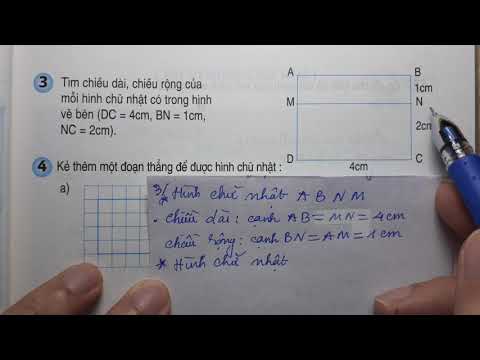 3 Tìm chiều dài, chiều rộng của
mỗi hình chữ nhật có trong hình
vẽ bên (DC = 4cm, BN = 1cm,
NC = 2cm).
A B
1cm
M N
2cm
D C
4cm
4 Kẻ thêm một đoạn thẳng để được hình chữ nhật :
a)
3/ * Hình chữ nhật A B N M
- Chiều dài: cạnh AB = MN = 4cm
chiều rộng: cạnh BN = AM = 1cm
* Hình chữ nhật